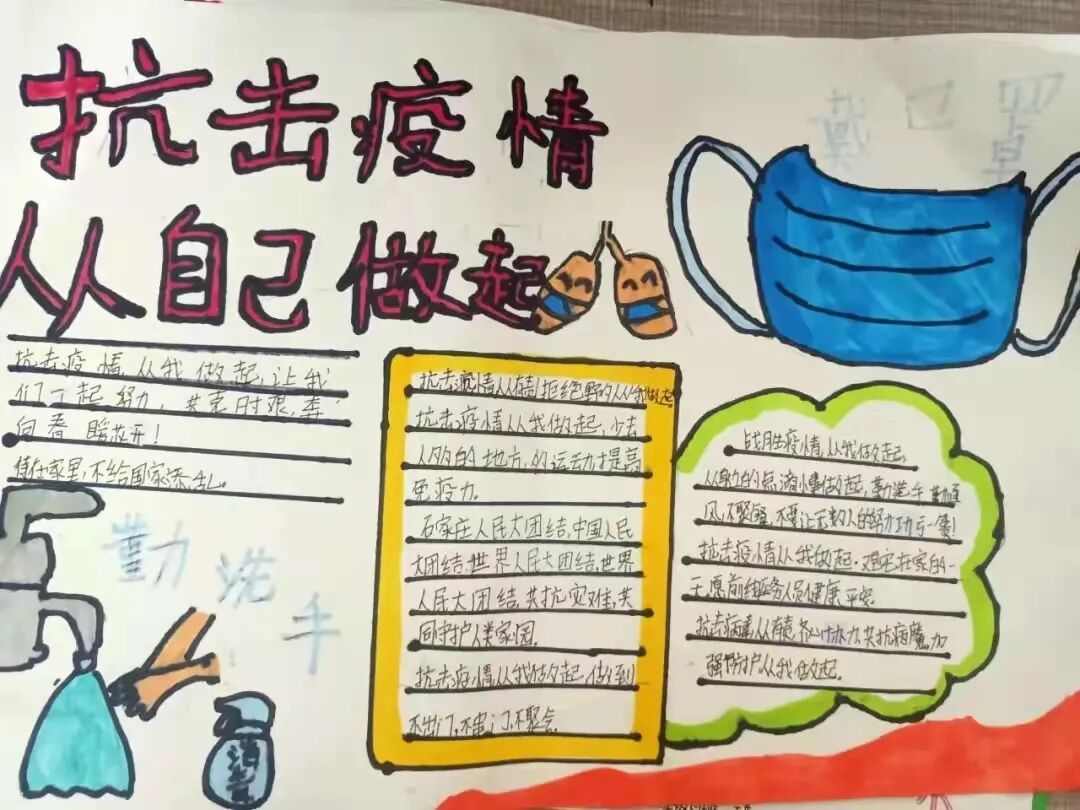 抗击疫情
从自己做起
戴口罩
抗击疫情从我做起,让我
们一起努力,共克时艰,春
向春暖花开!
待在家里,不给国家添乱。
勤洗手
消毒
抗击疫情从有我拒绝野味从我做起
抗击疫情从我做起,少去
人多的地方,的运动才提高
免疫力。
石家庄人民大团结,中国人民
大团结,世界人民大团结,世界
人民大团结,共抗灾难,共
同守护人类家园。
抗击疫情从我做起,做到
不出门,不串门,不聚会。
战胜疫情,从我做起,
从身边的点滴小事做起,勤洗手,勤通
风,不聚餐,不要让无数人的努力功亏一篑!
抗击疫情从我做起,
愿前线医务人员健康,平安。
齐心协力,共抗病魔,加
强防护从我做起。